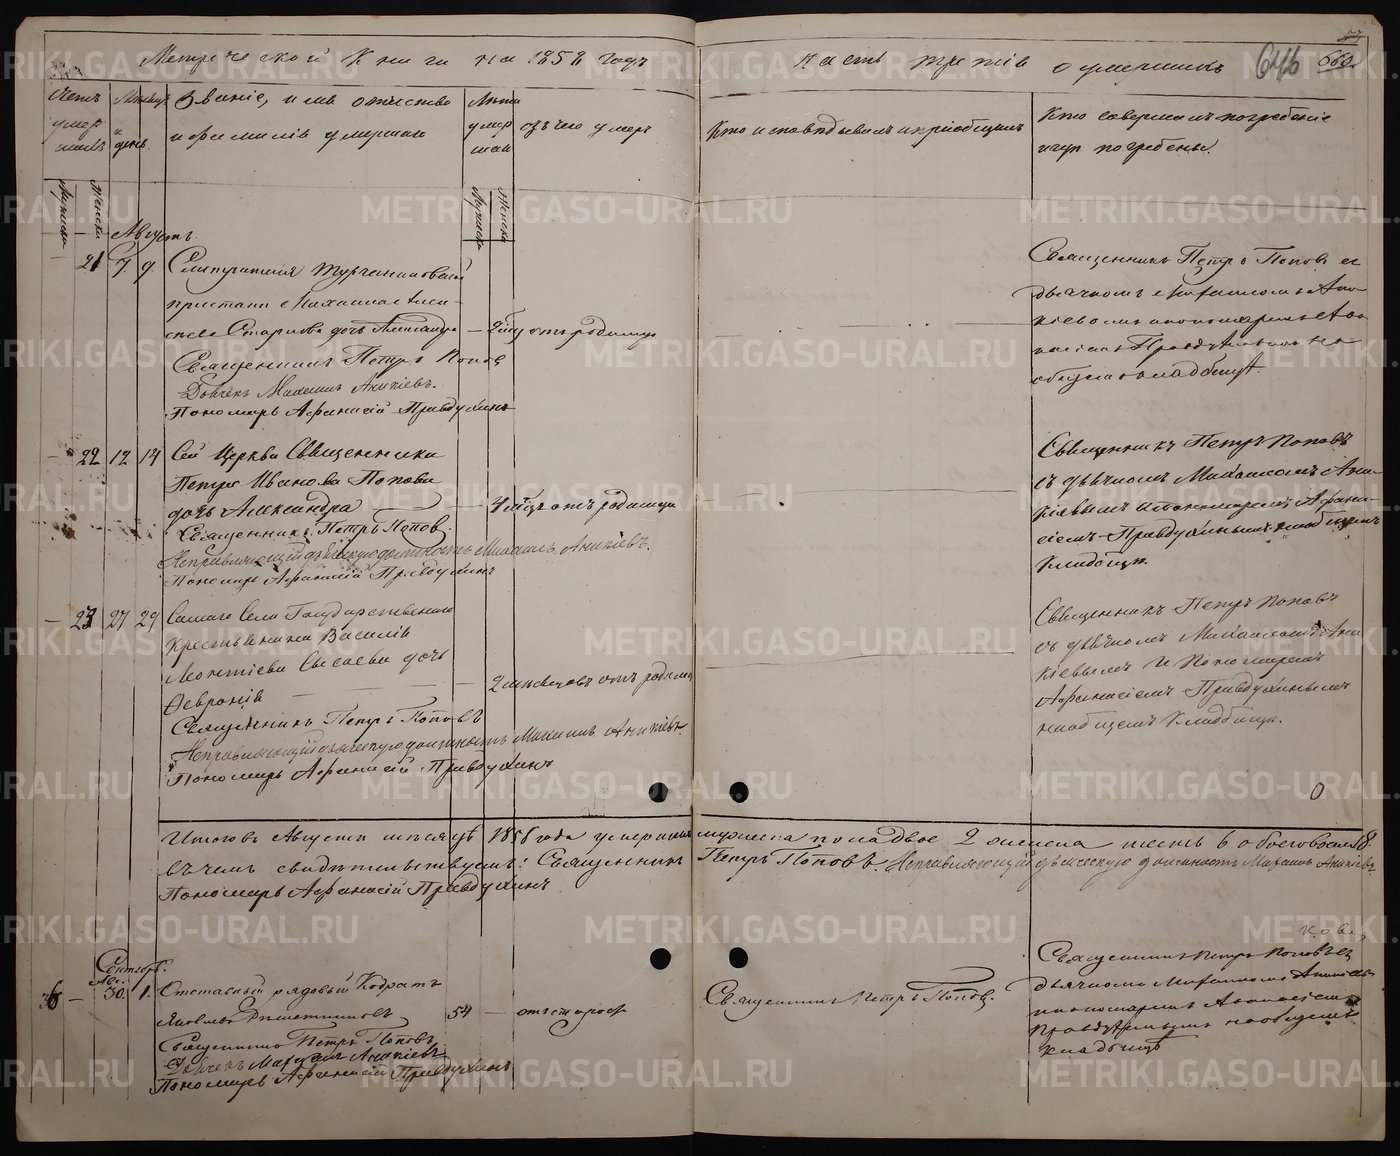 Метрической Книги на 1858 годъ
Часть третія о умершихъ
646
660
Счетъ умершихъ
Мѣсяцъ и день
Званіе, имя отчество и фамилія умершаго
Лѣта умершаго
отъ чего умеръ
Кто исповѣдывалъ и пріобщалъ
Кто совершалъ погребеніе и гдѣ погребены.
Мужеска
Женска
Мужеска
Женска
Августъ
21 7 9
пристани Михаила Алек-
сѣева дочь Александра
отъ родимца
Священникъ Петръ Попов
Дьячекъ Михаилъ Аникіевъ.
Пономарь Афанасій Правдухинъ
Священникъ Петръ Поповъ съ
дьячкомъ Михаиломъ Ани-
кіевымъ и пономаремъ Афа-
насіемъ Правдухинымъ на
общемъ кладбищѣ.
22 12 14
Сей Церкви Священника
Петра Иванова Попова
дочь Александра
отъ родимца
Священникъ Петръ Попов.
Исправляющій дьяческую должность Михаилъ Аникіевъ.
Пономарь Афанасій Правдухинъ
Священникъ Петръ Поповъ
съ дьячкомъ Михаиломъ Ани-
кіевымъ и Пономаремъ Афана-
сіемъ Правдухинымъ на общемъ
Кладбищѣ.
23 27 29
Самаго Села Государственнаго
Крестьянина Василія
Леонтіева Сысоева дочь
Февронія
2 мѣсяцовъ отъ родимца
Священникъ Петръ Поповъ
Исправляющій дьяческую должность Михаилъ Аникіевъ.
Пономарь Афанасій Правдухинъ
Священникъ Петръ Поповъ
съ дьячкомъ Михаиломъ Ани-
кіевымъ и Пономаремъ
Афанасіемъ Правдухинымъ
на общемъ Кладбищѣ.
Итого въ Августѣ мѣсяцѣ 1858 года умершихъ мужеска пола двое 2 женска шесть 6 обоего восемь 8.
Въ чемъ свидѣтельствуемъ: Священникъ Петръ Поповъ. Исправляющій дьяческую должность Михаилъ Аникіевъ
Пономарь Афанасій Правдухинъ
Сентябрь.
Авг.
30. 1.
Отставный рядовый Кодратъ
Яковлевъ Рѣшетниковъ
54 — отъ старости
Священникъ Петръ Поповъ.
Священникъ Петръ Поповъ.
Дьячекъ Михаилъ Аникіевъ
Пономарь Афанасій Правдухинъ
Священникъ Петръ Поповъ съ
дьячкомъ Михаиломъ Аникіев-
пономаремъ Афанасіемъ
Правдухинымъ на общемъ
кладбищѣ
METRIKI.GASO-URAL.RU